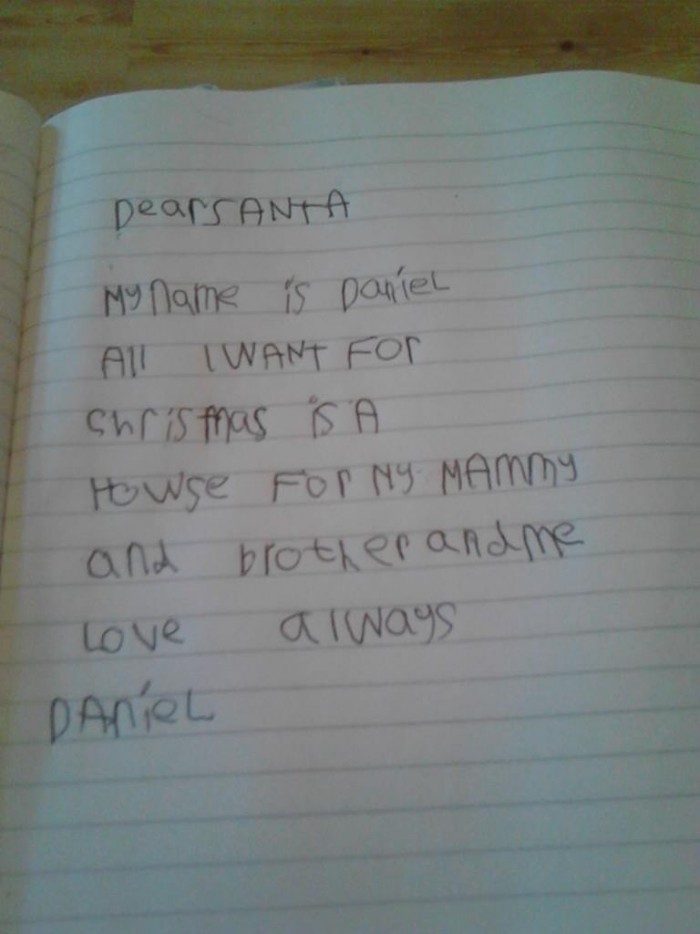 DearSANTA
MyName is DanieL
All I WANT FOr
Christmas is A
Howse For My MAmmy
and brother andme
Love always
DAnieL